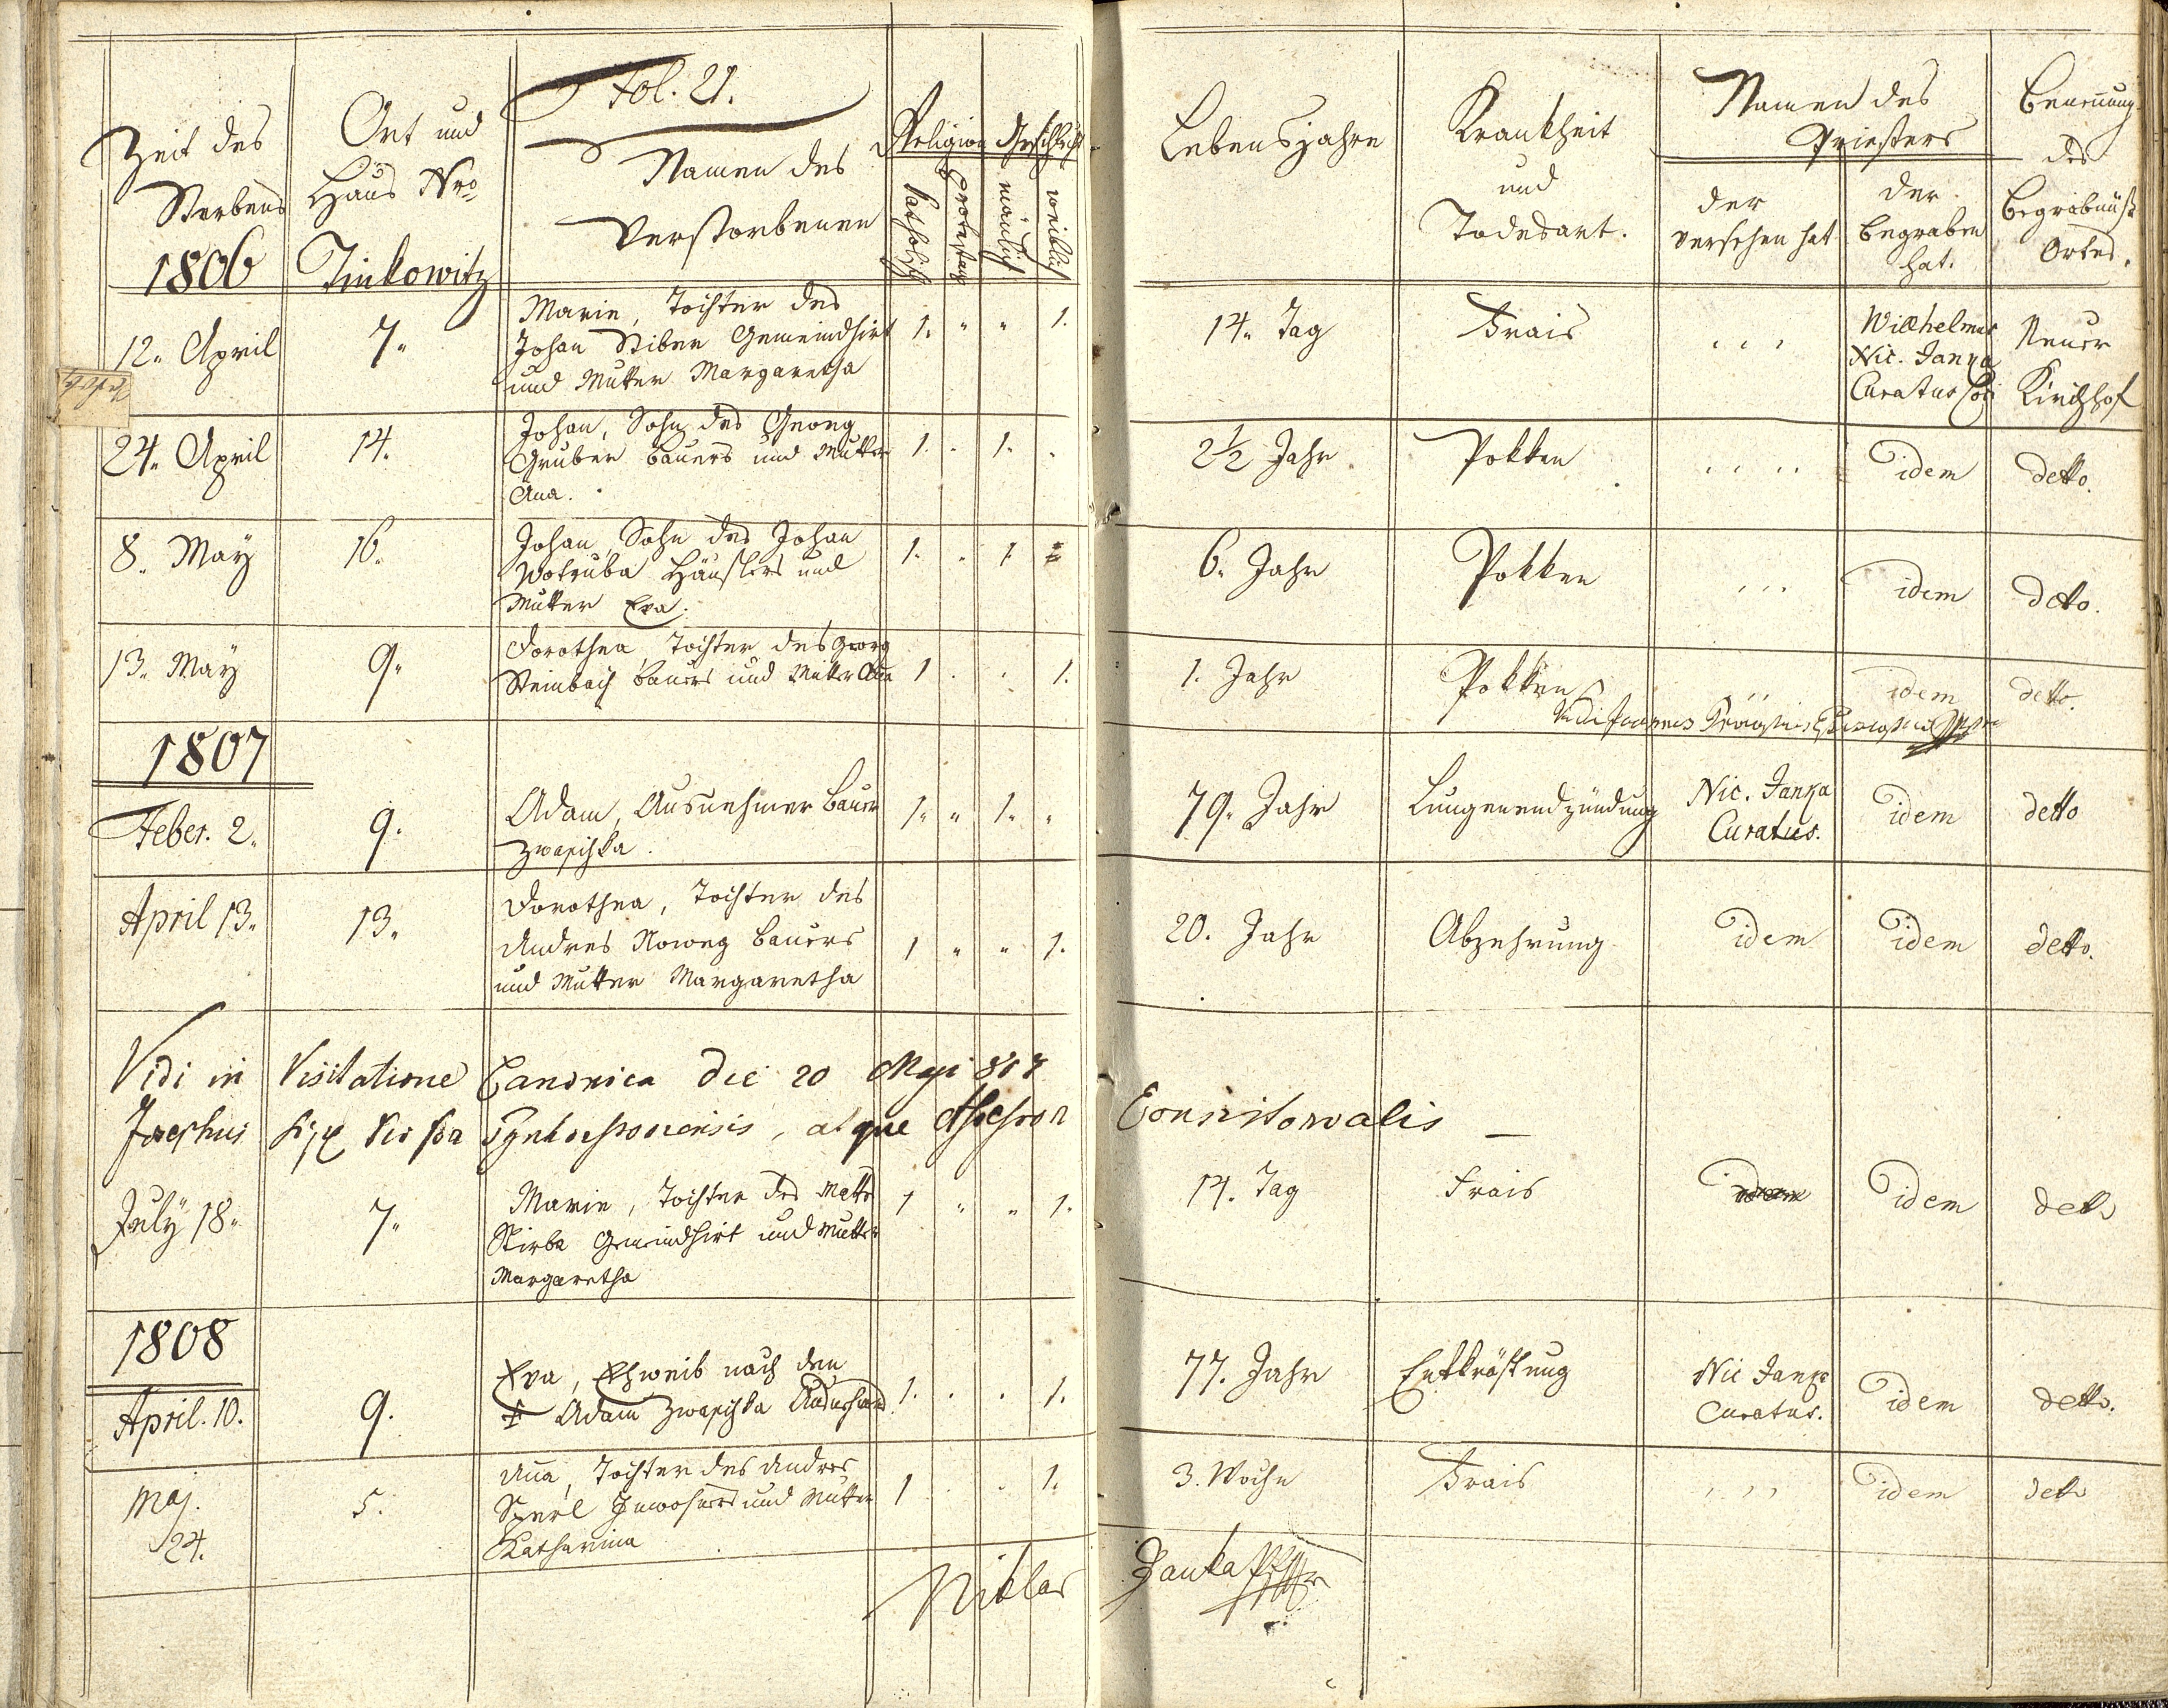 Fol. 21.
Zeit des Sterbens
Ort und Haus Nro
Namen des Verstorbenen
Religion
Geschlecht
Katholisch
Protestant
mänlich
weiblich
Lebensjahre
Krankheit und Todesart.
Namen des Priesters
der versehen hat
der begraben hat.
Benennung des Begräbnuß Ortes.
1806 Tinkowitz
12. April 7. Marie, Tochter des 14. Tag Frais Wilhelmus Neuer
Johan Stiber Gemeindhirt 1. " " 1. Nic. Janka
und Mutter Margaretha Curatus Loci Kirchhof
24. April 14. Johan, Sohn des Georg 2 1/2 Jahr Pokken idem detto.
Gruber Bauers und Mutter 1. . 1. .
Ana.
8. May 16. Johan, Sohn des Johan 1. . 1. 6. Jahr Pokken idem detto.
Wotruba Häuslers und
Mutter Eva.
13. May 9. Dorothea, Tochter des Georg 1. Jahr Pokken idem detto.
Steinbach Bauers und Mutter Ana 1 . . 1.
1807
Feber. 2. 9. Adam, Ausnehmer Bauer 1. " 1. " 79. Jahr Lungenendzündung Nic. Janka idem detto
Curatus.
April 13. 13. Dorothea, Tochter des 20. Jahr Abzehrung idem idem detto.
Andres Noweg Bauers 1 " " 1.
und Mutter Margaretha
Vidi in Visitatione Canonica die 20 Maji 807
Josephus atque Assessor Consistorialis
July 18. 7. Marie, Tochter des Mathes 1 " " 1. 14. Tag Frais idem detto
Stirba Gemeindhirt und Mutter
Margaretha
1808
April. 10. 9. Eva, Ehweib nach dem 77. Jahr Entkräftung Nic Janka idem detto.
† Adam 1. . . 1. Curatus.
Maj. 24. 5. Ana, Tochter des Andres 3. Woche Frais idem detto
Sperl Inwohners und Mutter 1 . . 1.
Katharina
Niklas Janka